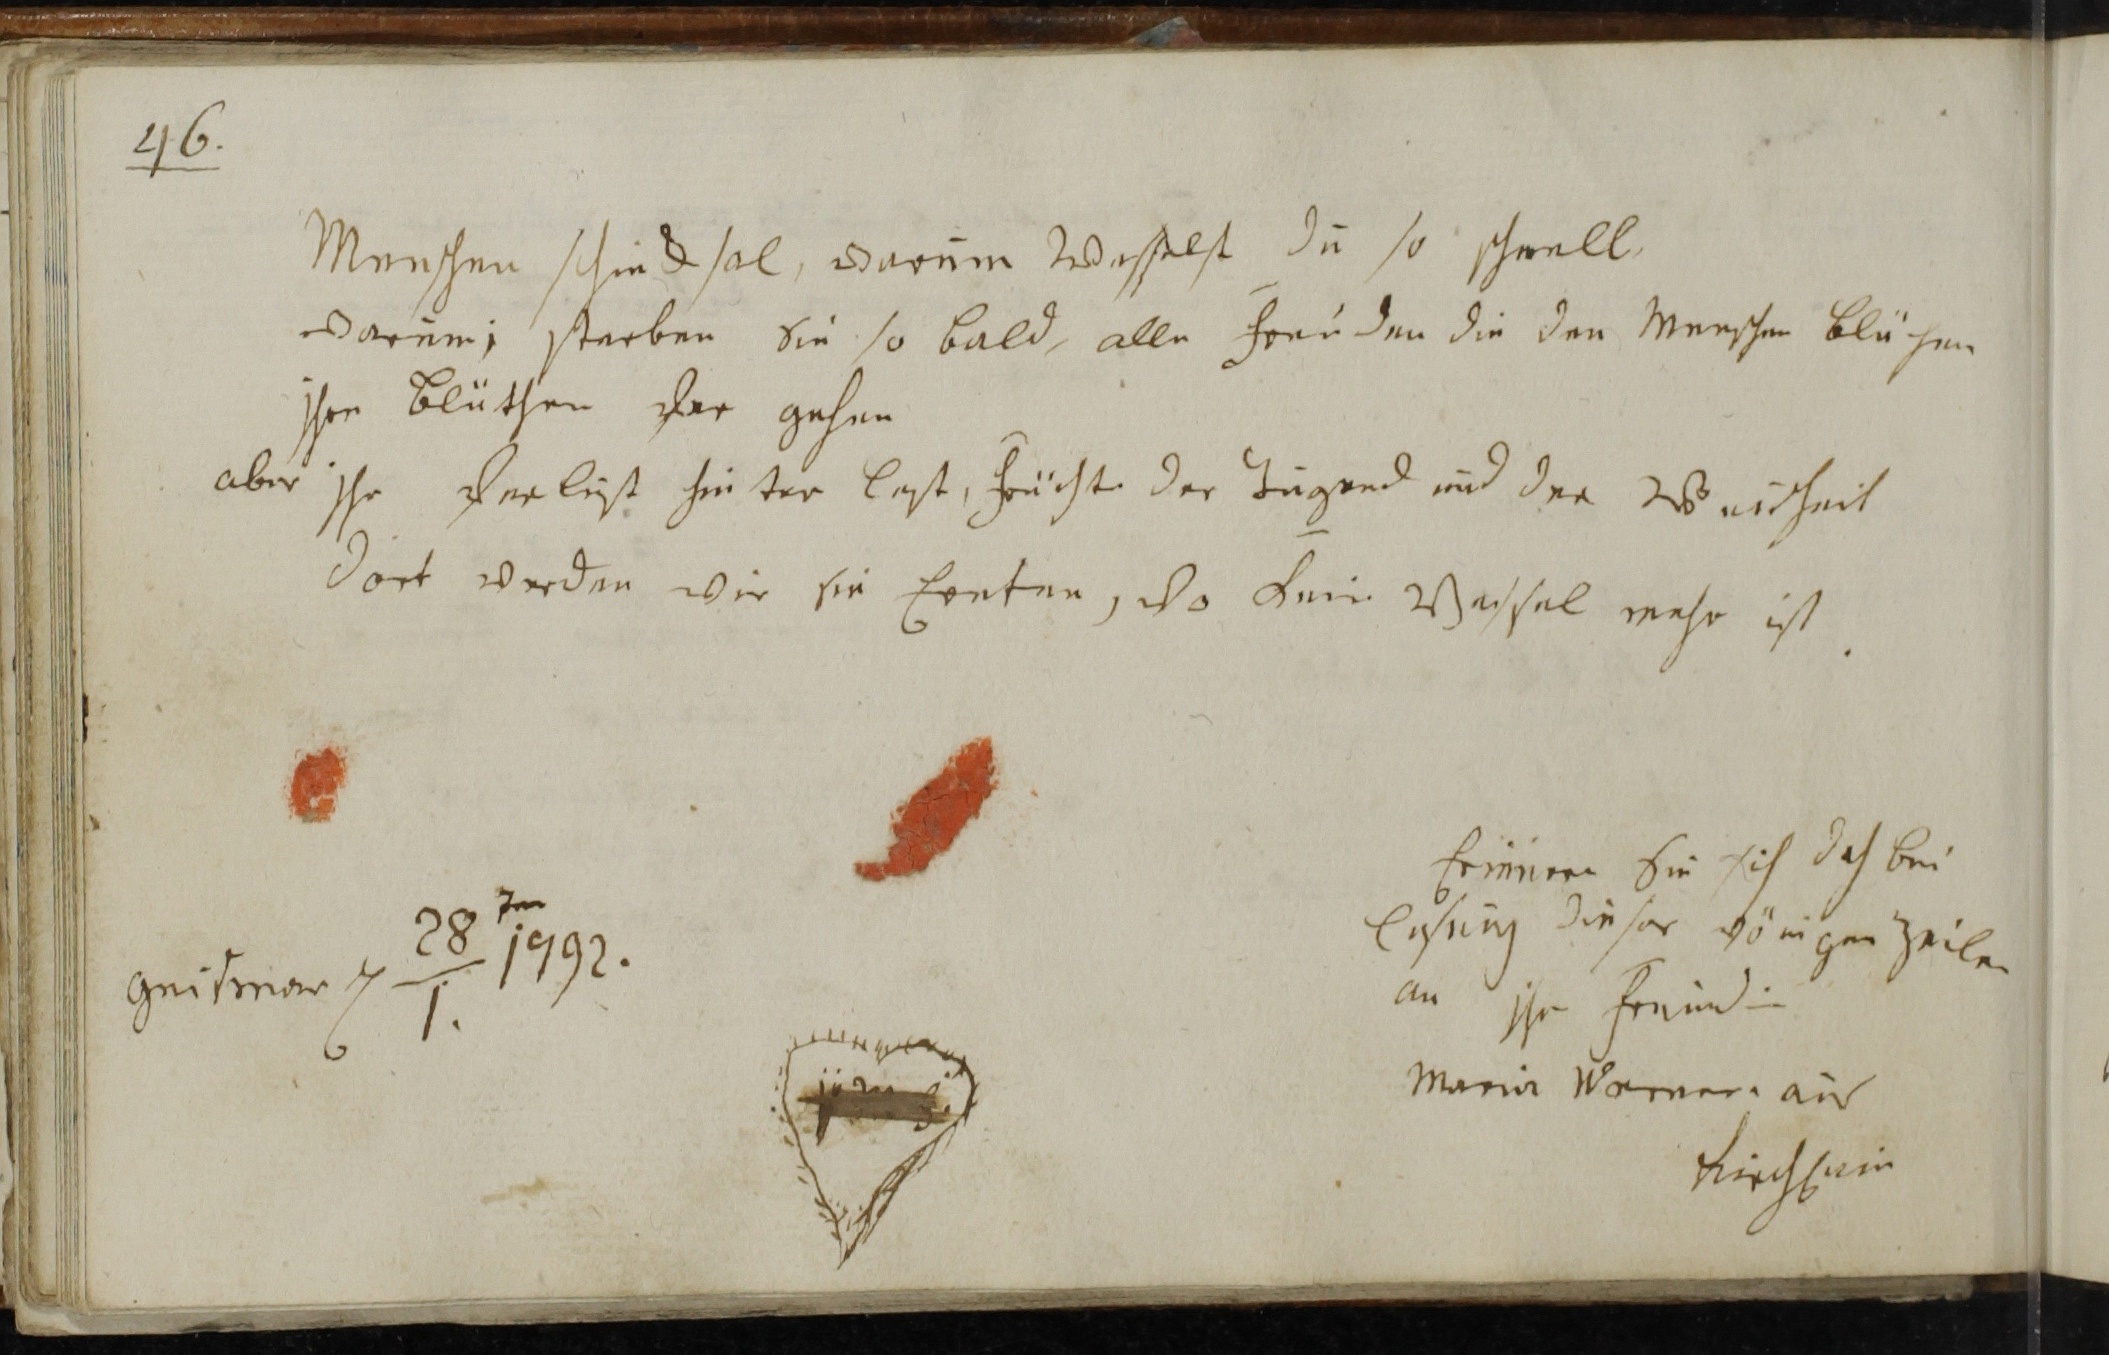 46.
Menschen schiecksal, warum Wechselst du so schnell,
warum; sterben Sie so bald, alle Freuden die den Menschen blühen
ihre Blüthen Ver gehen
aber ihr Verlust hinter lest, Früchte der Tugend und der Weisheit
dort werden wir sie Ernten, wo kein Wechsel mehr ist.
Geismar d 28ten/1. 1792.
Erinnern Sie sich doch bei
Lesung dieser wönigen Zeilen
an ihr Freundin
Maria Werner aus
Kirchhain